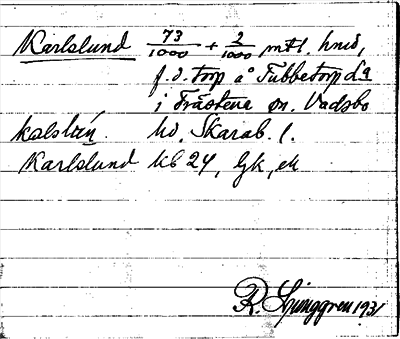 Karlslund 73/1000 + 2/1000 mtl. hmd,
f.d. torp å Tubbetorp
i Trästena sn. Vadsbo
hd, Skarab. l.
Karlslund kb 24, Gk, ek
R. Ljunggren 1931